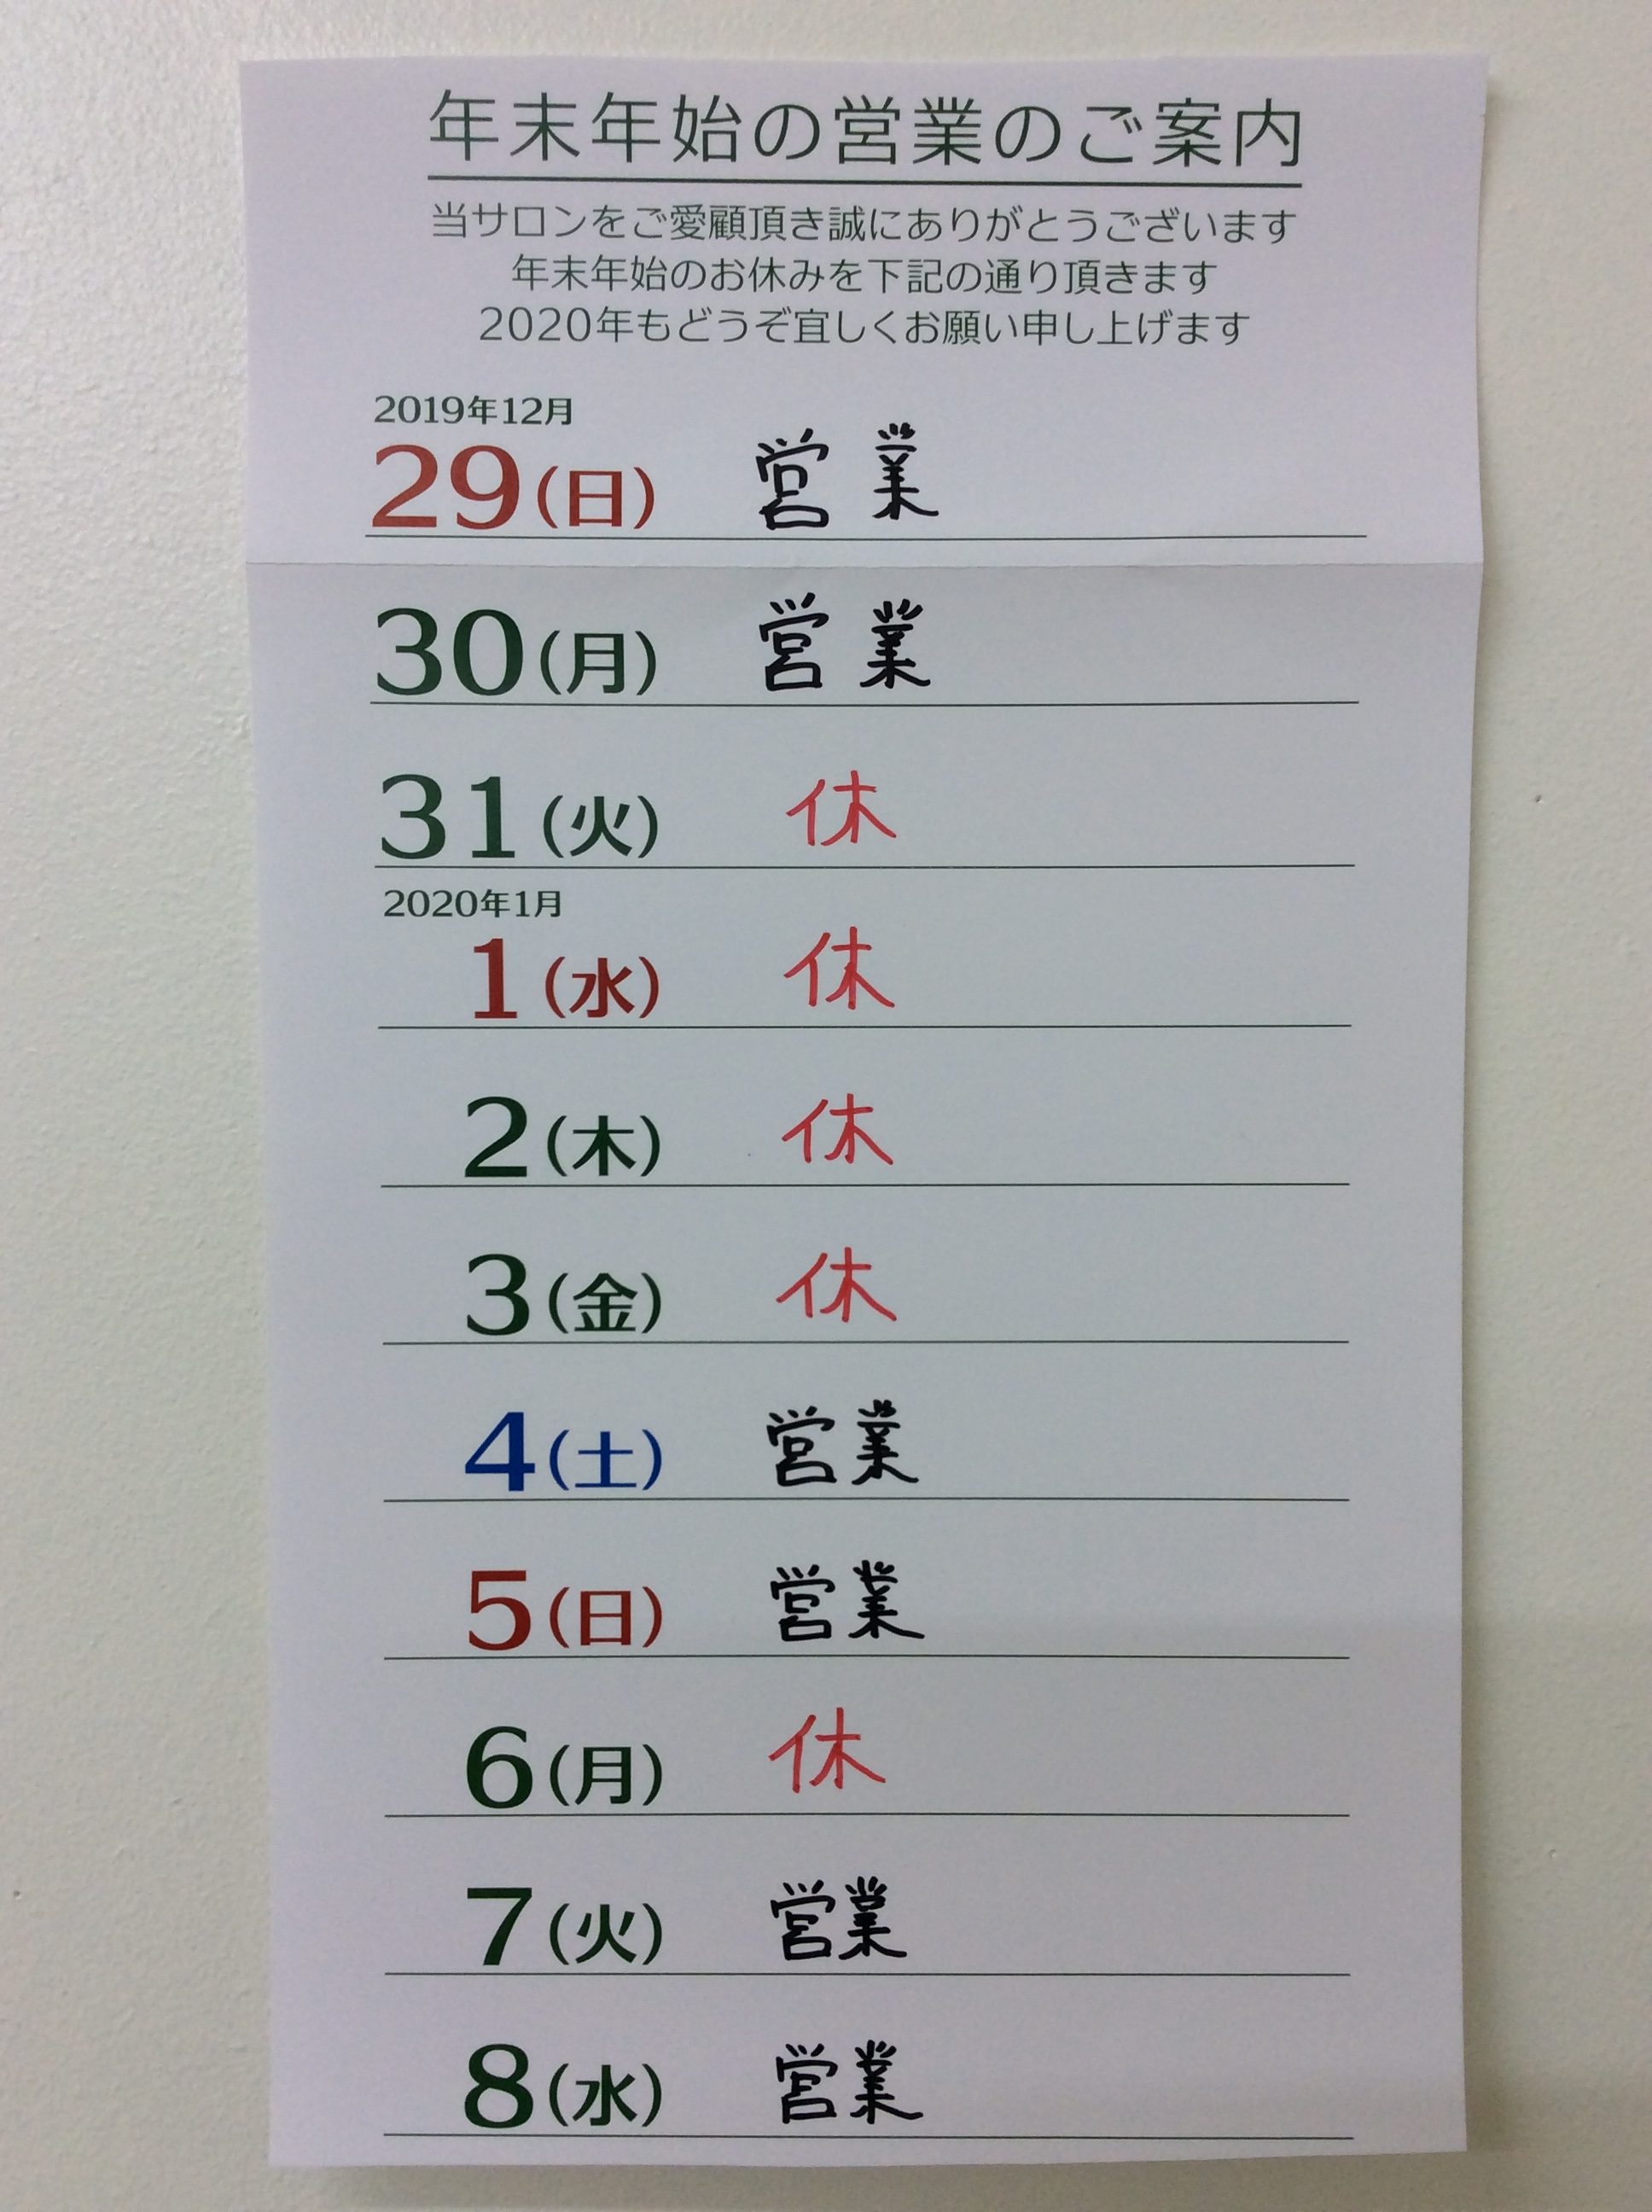 年末年始の営業のご案内
当サロンをご愛顧頂き誠にありがとうございます
年末年始のお休みを下記の通り頂きます
2020年もどうぞ宜しくお願い申し上げます
2019年12月
29(日) 営業
30(月) 営業
31(火) 休
2020年1月
1(水) 休
2(木) 休
3(金) 休
4(土) 営業
5(日) 営業
6(月) 休
7(火) 営業
8(水) 営業